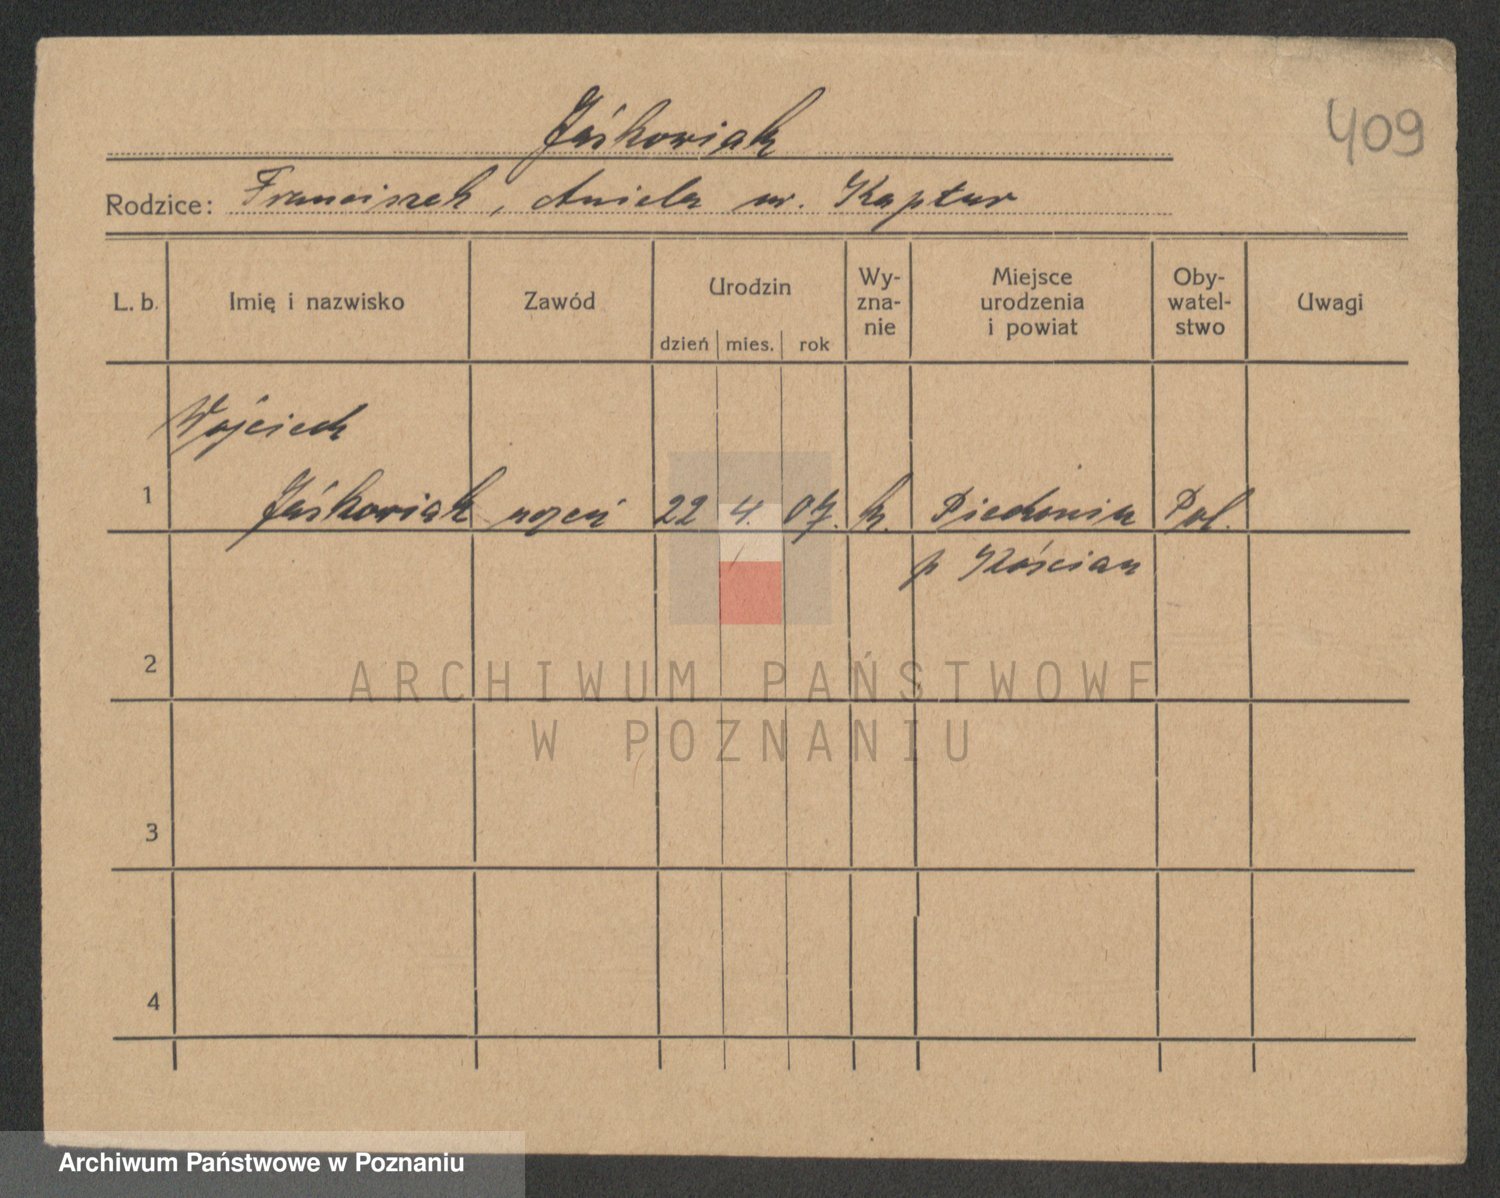 409
Jaśkowiak
Rodzice: Franciszek, Aniela ur. Kaptur
L. b. Imię i nazwisko Zawód Urodzin Wy-zna-nie Miejsce urodzenia i powiat Oby-watel-stwo Uwagi
dzień mies. rok
Wojciech
1 Jaśkowiak uczeń 22 4. 07. k. Piechanin Pol.
p Kościan
2
3
4
ARCHIWUM PAŃSTWOWE
W POZNANIU
Archiwum Państwowe w Poznaniu